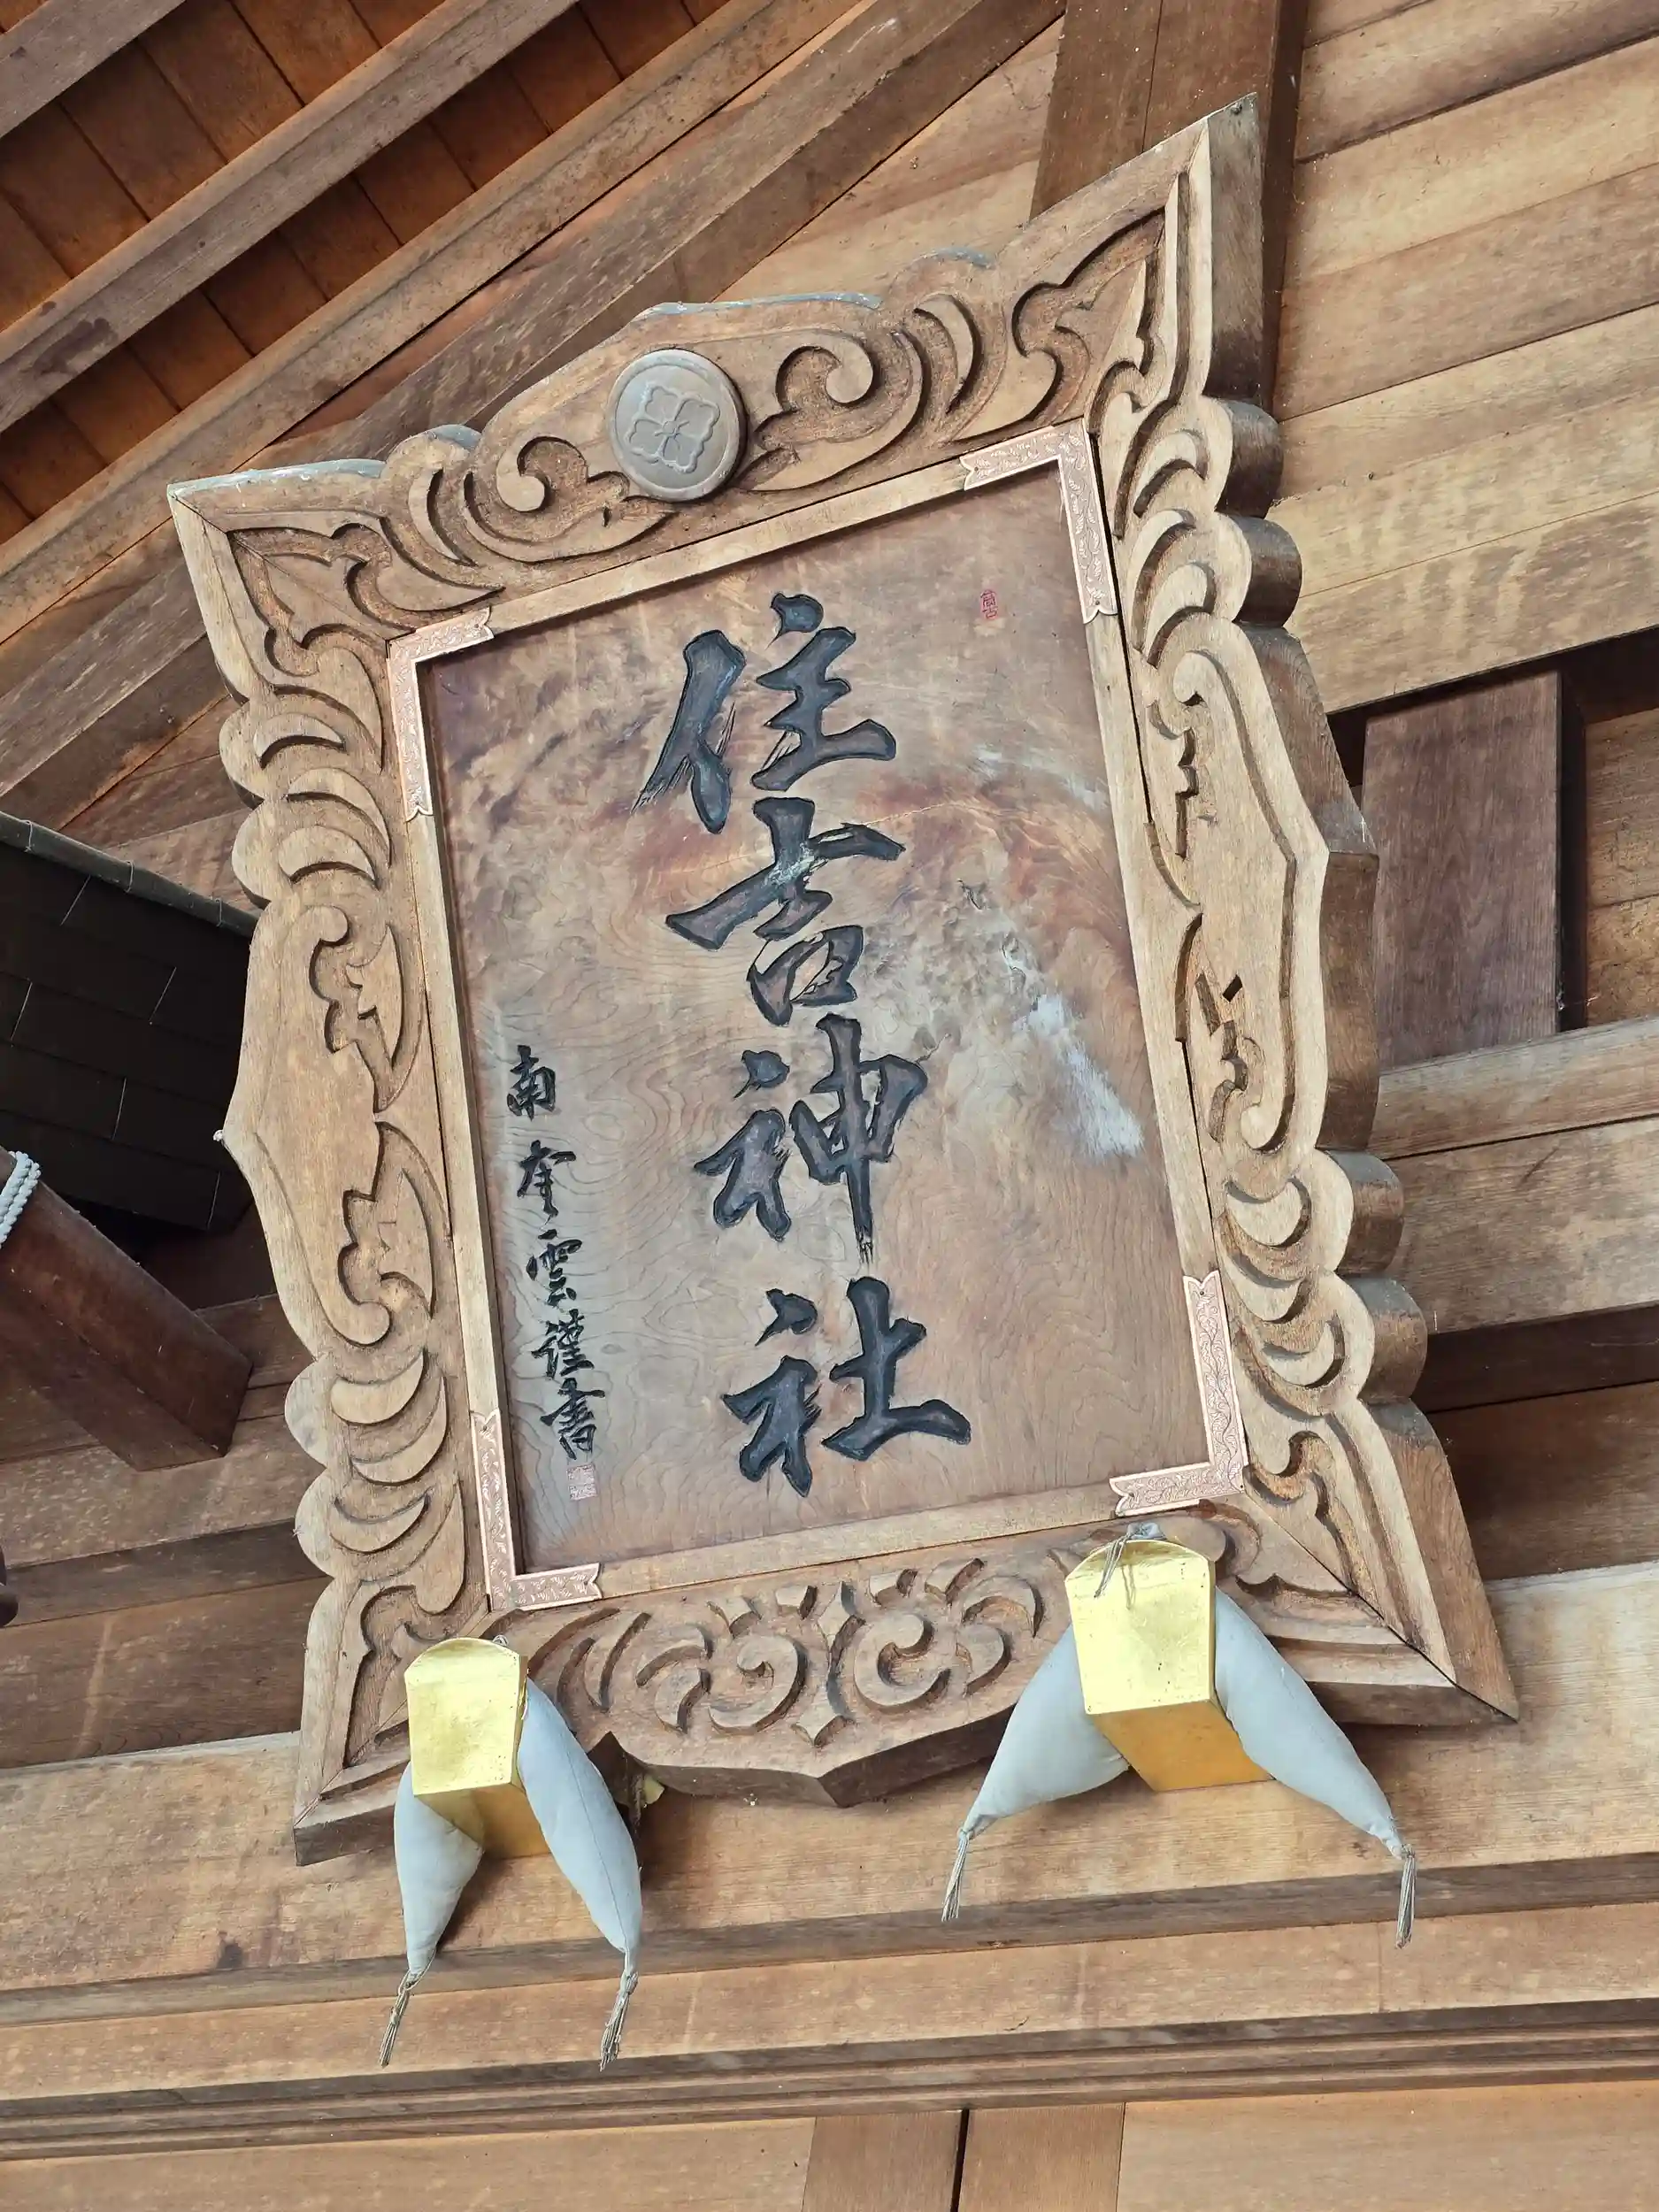 住吉神社
南奎雲謹書